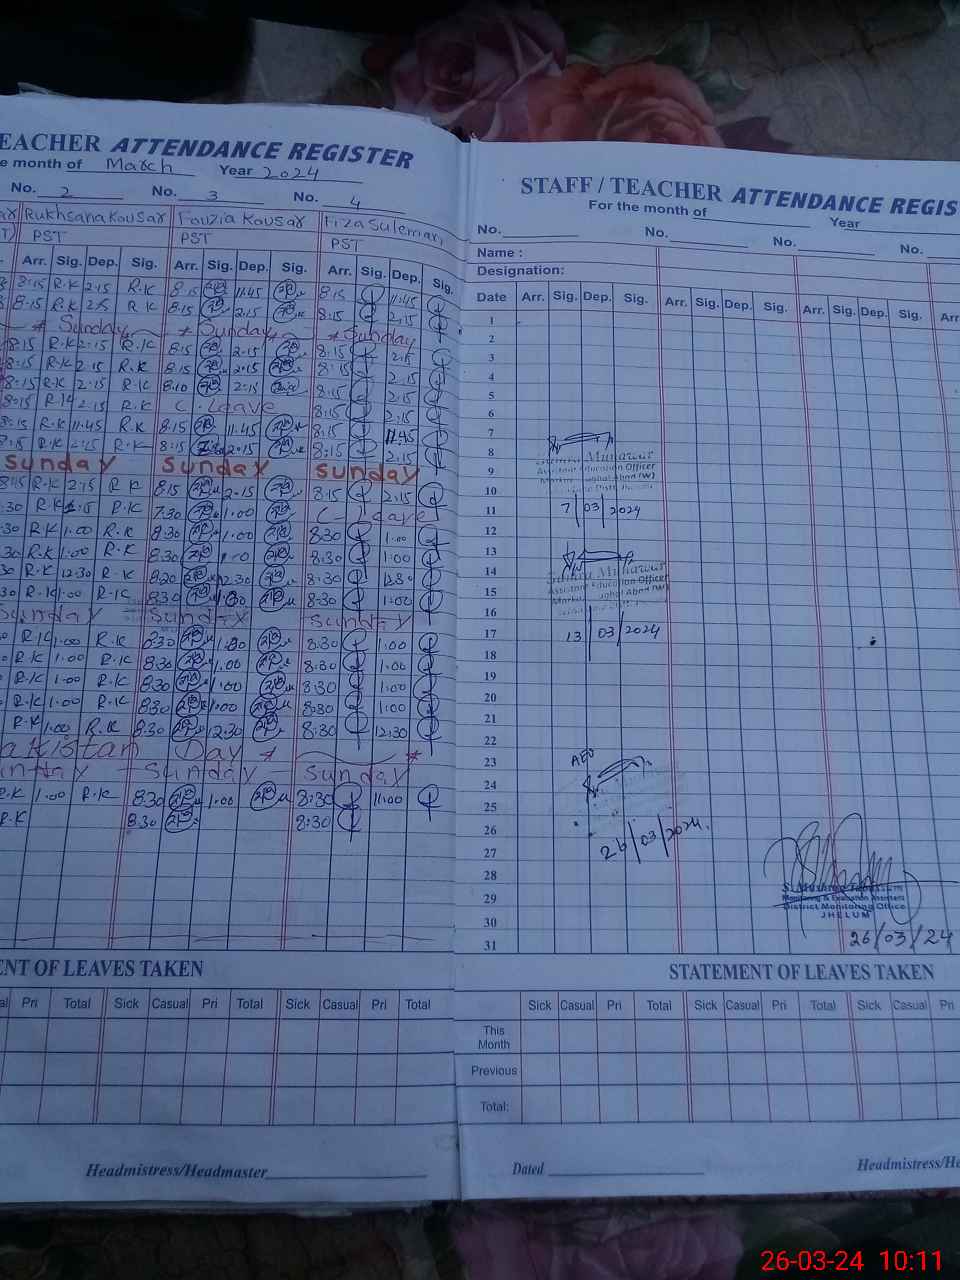 EACHER ATTENDANCE REGISTER
e month of March Year 2024
No. 2 No. 3 No. 4
Rukhsana Kousar Fouzia Kousar Fiza Suleman
PST PST PST
Arr. Sig. Dep. Sig. Arr. Sig. Dep. Sig. Arr. Sig. Dep. Sig.
8:15 R.K 2:15 R.K 8:15 11:45 8:15 11:45
8:15 R.K 2:15 R K 8:15 2.15 8:15 2.15
* Sunday * Sunday * Sunday
8:15 R.K 2:15 R.K 8:15 2.15 8:15 2.15
8:15 R.K 2.15 R.K 8:15 2:15 8:15 2.15
8:15 R.K 2.15 R.K 8:10 2:15 8:15 2.15
8:15 R.K 2.15 R.K C. Leave 8:15 2.15
8:15 R.K 11.45 R.K 8:15 11.45 8:15 11.45
8:15 R.K 2:15 R.K 8:15 2:15 8:15 2.15
Sunday Sunday Sunday
8:15 R.K 2:15 R K 8:15 2.15 8:15 2.15
:30 R.K R.K 7:30 1.00 C. Leave
:30 R.K 1.00 R.K 8:30 1.00 8:30 1.00
:30 R.K 1:00 R.K 8:30 8:30 1:00
30 R.K 12:30 R.K 8:20 12:30 8:30 12:30
30 R.K 1:00 R.K 8:30 1:00 8:30 1:00
Sunday Sunday Sunday
R.K 1.00 R.K 8:30 8:30 1.00
R.K 1.00 R.K 8:30 1.00 8:30 1.00
R.K 1.00 R.K 8:30 1:00 8:30 1:00
R.K 1.00 R.K 8:30 1:00 8:30 1:00
R.K 1:00 R.K 8:30 12:30 8:30 12:30
akistan Day *
nday Sunday Sunday
R.K 1.00 R.K 8:30 1:00 8:30 11:00
R.K 8:30 8:30
ENT OF LEAVES TAKEN
Pri Total Sick Casual Pri Total Sick Casual Pri Total
Headmistress/Headmaster
STAFF / TEACHER ATTENDANCE REGIS
For the month of Year
No. No. No. No.
Name :
Designation:
Date Arr. Sig. Dep. Sig. Arr. Sig. Dep. Sig. Arr. Sig. Dep. Sig. Arr
1
2
3
4
5
6
7
8
9
10
11
12
13
14
15
16
17
18
19
20
21
22
23
24
25
26
27
28
29
30
31
Munawar
Assistant Education Officer
7/03/2024
Munawar
Assistant Education Officer
13/03/2024
AEO
26/03/2024.
Monitoring & Evaluation Assistant
District Monitoring Office
JHELUM
26/03/24
STATEMENT OF LEAVES TAKEN
Sick Casual Pri Total Sick Casual Pri Total Sick Casual Pri
This Month
Previous
Total:
Dated Headmistress/He
26-03-24 10:11